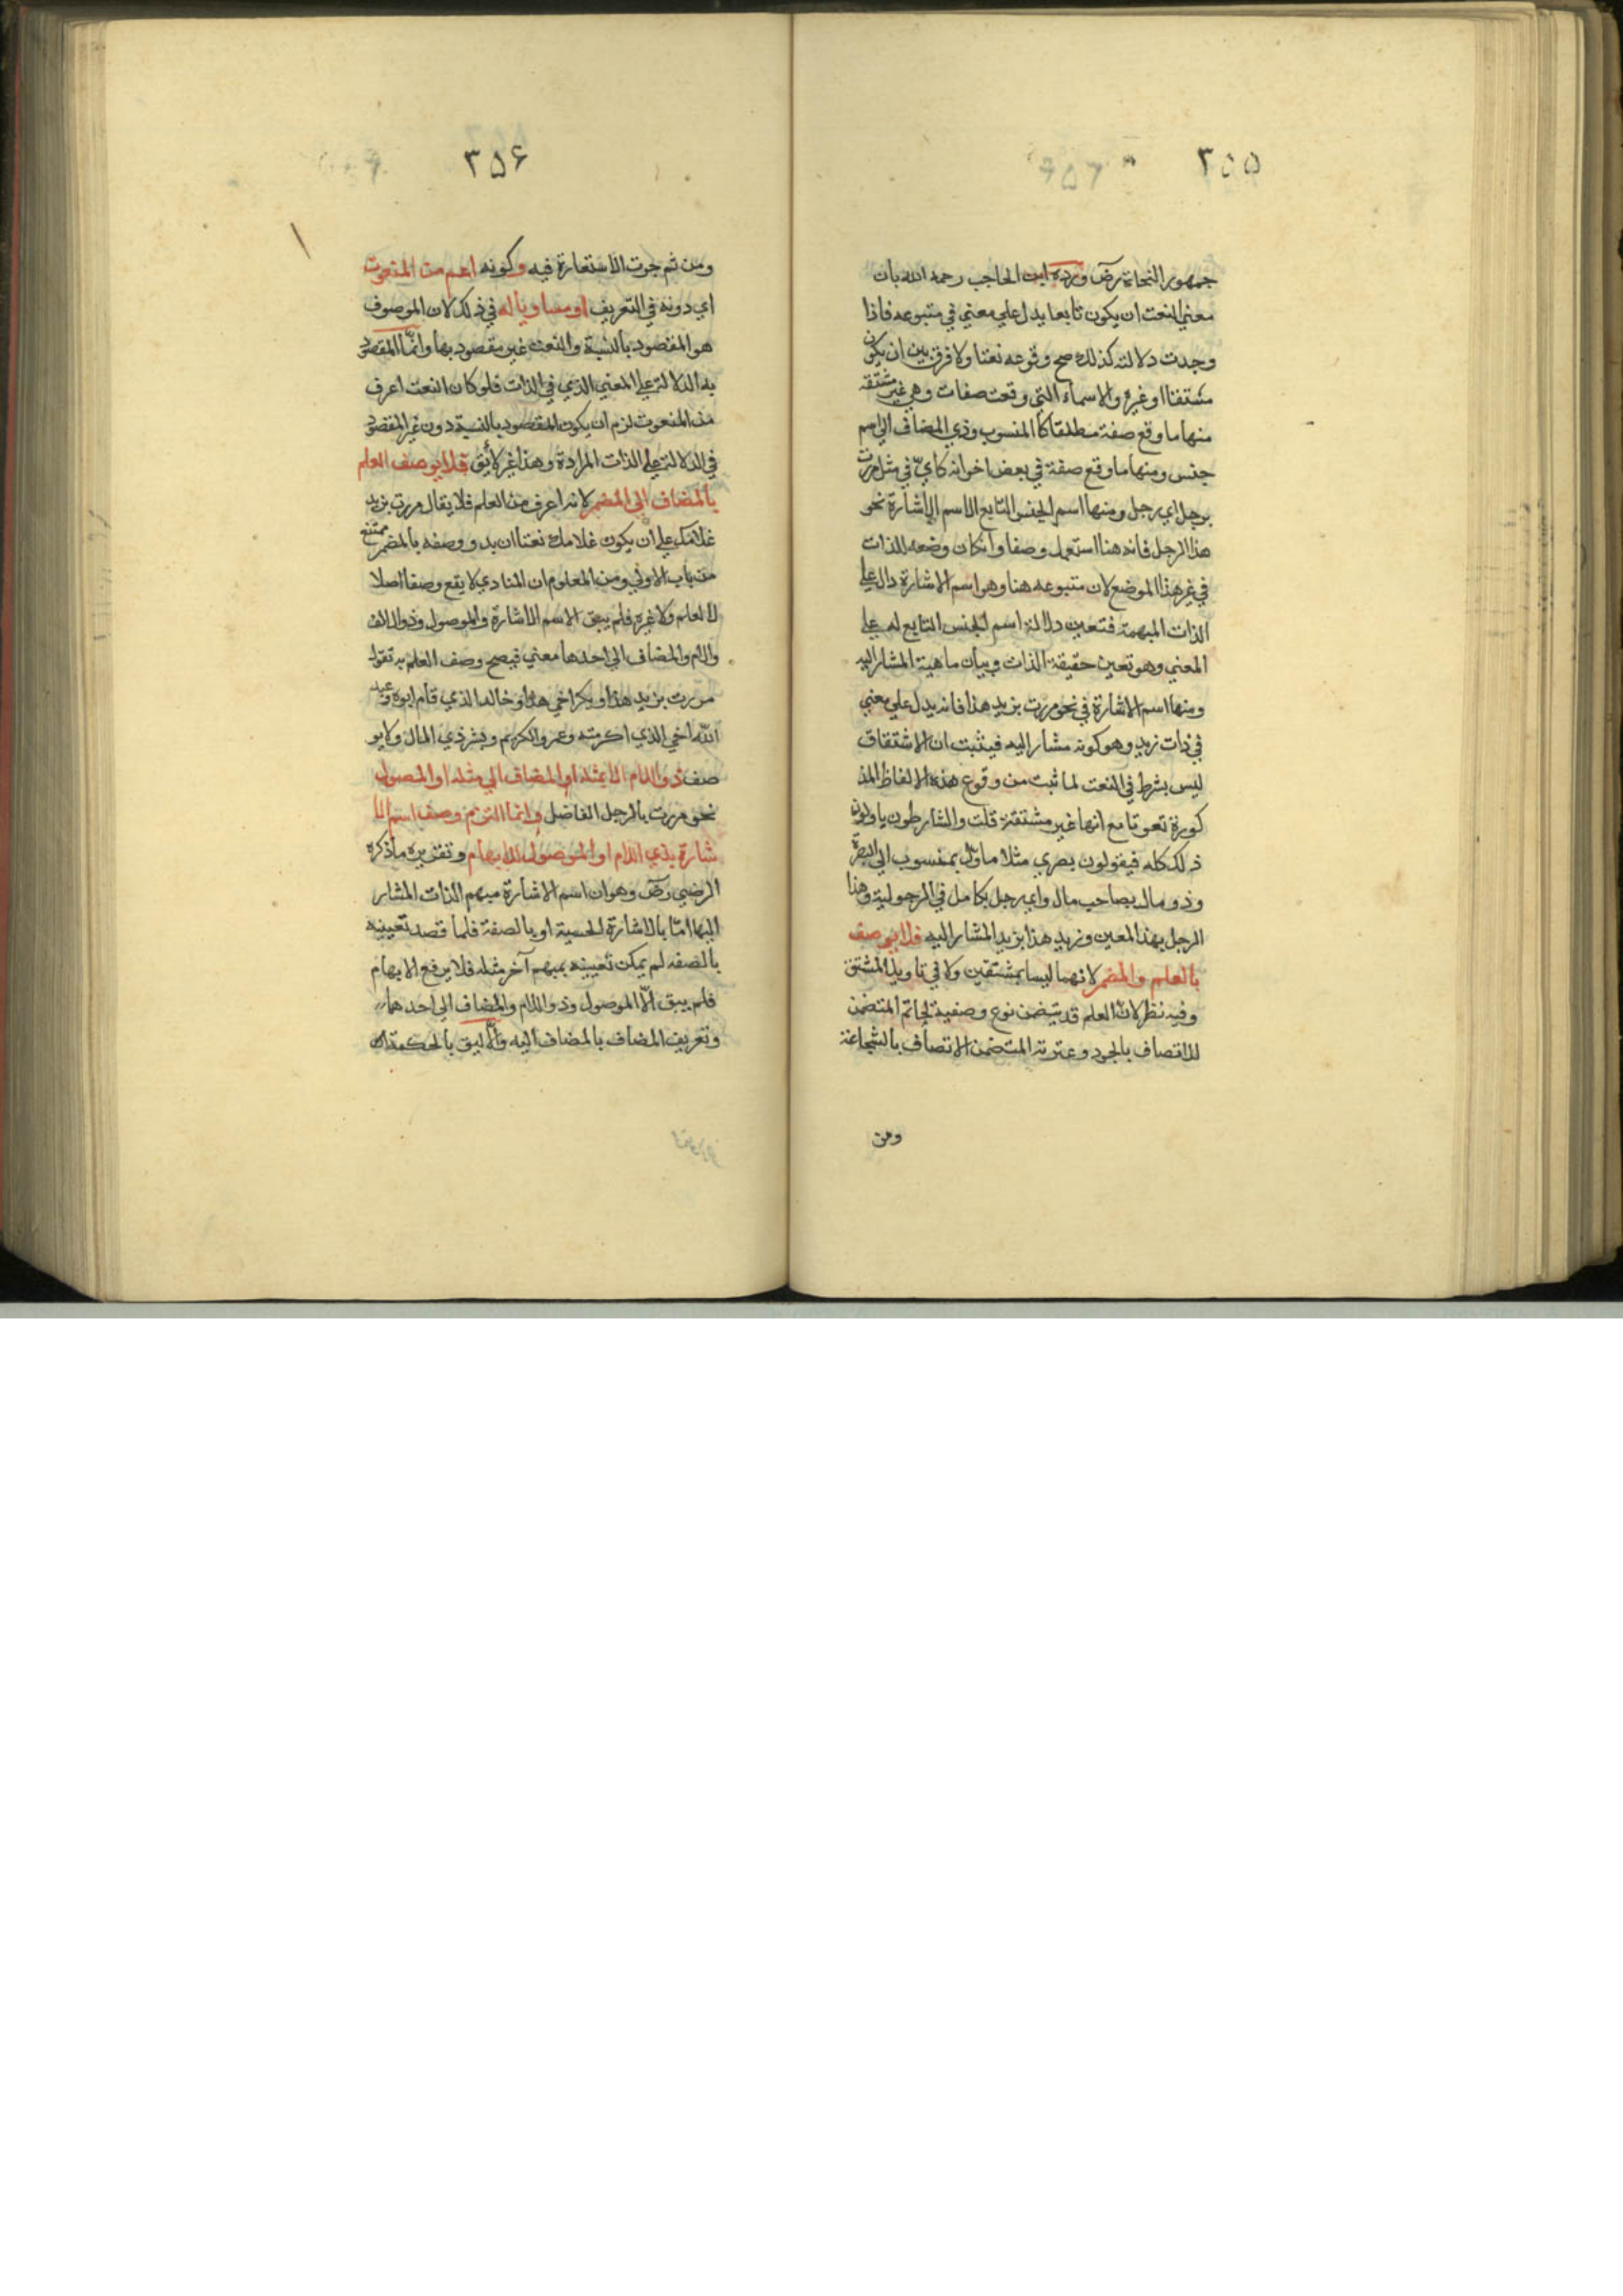 ٣٥٥
جمهور النحاة رض ورده ابن الحاجب رحمه الله بان
معني النعت ان يكون تابعا يدل علي معني في متبوعه فاذا
وجدت دلالته كذلك صح وقوعه نعتا ولا فرق بين ان يكون
مشتقا او غيره والاسماء التي وقعت صفات وهي غير مشتقه
منها ما وقع صفة مطلقا كالمنسوب وذي المضاف الي اسم
جنس ومنها ما وقع صفة في بعض احواله كايّ في مثل مررت
برجل اي رجل ومنها اسم الجنس التابع لاسم الاشارة نحو
هذا الرجل فانه هنا استعمل وصفا وان كان وضعه للذات
في غير هذا الموضع لان متبوعه هنا وهو اسم الاشارة دال علي
الذات المبهمة فتعين دلالة اسم الجنس التابع له علي
المعني وهو تعين حقيقة الذات وبيان ماهية المشار اليه
ومنها اسم الاشارة في نحو مررت بزيد هذا فانه يدل علي معني
في ذات زيد وهو كونه مشار اليه فيثبت ان الاشتقاق
ليس بشرط في النعت لما ثبت من وقوع هذه الالفاظ المذ
كورة نعوتا مع انها غير مشتقة قلت والشارطون ياولون
ذلك كله فيقولون بصري مثلا ماوّل بمنسوب الي البصرة
وذو مال بصاحب مال واي رجل بكامل في الرجولية وهذا
الرجل بهذا المعين وزيد هذا بزيد المشار اليه فلا يوصف
بالعلم والمضمر لانهما ليسا بمشتقين ولا في تاويل المشتق
وفيه نظر لان العلم قد يتضمن نوع وصفية كحاتم المتضمن
للاتصاف بالجود وعنترة المتضمن الاتصاف بالشجاعة
ومن
٣٥۶
ومن ثم جرت الاستعارة فيه وكونه اعم من المنعوت
اي دونه في التعريف او مساويا له في ذلك لان الموصوف
هو المقصود بالنسبة والنعت غير مقصود بها وانّما المقصود
به الدلالة علي المعني الذي في الذات فلو كان النعت اعرف
من المنعوت لزم ان يكون المقصود بالنسبة دون غير المقصود
في الدلالة علي الذات المرادة وهذا غير لائق فلا يوصف العلم
بالمضاف الي المضمر لانه اعرف من العلم فلا يقال مررت بزيد
غلامك علي ان يكون غلامك نعتا لزيد ووصفه بالمضمر ممتنع
من باب الاولي ومن المعلوم ان المنادي لا يقع وصفا اصلا
لا لعلم ولا غيره فلم يبق الا اسم الاشارة والموصول وذو الالف
واللام والمضاف الي احدها معني فيصح وصف العلم به تقول
مررت بزيد هذا وبكر اخي هذا وخالد الذي قام ابوه وعبد
اللّه اخي الذي اكرمته وعمرو الكريم وبشر ذي المال ولا يو
صف ذو اللام الا بمثله او المضاف الي مثله او الموصول
نحو مررت بالرجل الفاضل وانما التزم وصف اسم الا
شارة بذي اللام او الموصول للابهام وتقريره ما ذكره
الرضي رض وهو ان اسم الاشارة مبهم الذات المشار
اليها امّا بالاشارة الحسية او بالصفة فلما قصد تعيينه
بالصفه لم يمكن تعيينه بمبهم آخر مثله فلا يرفع الابهام
فلم يبق الّا الموصول وذو اللام والمضاف الي احدهما
وتعريف المضاف بالمضاف اليه والّاليق بالحكمة ان